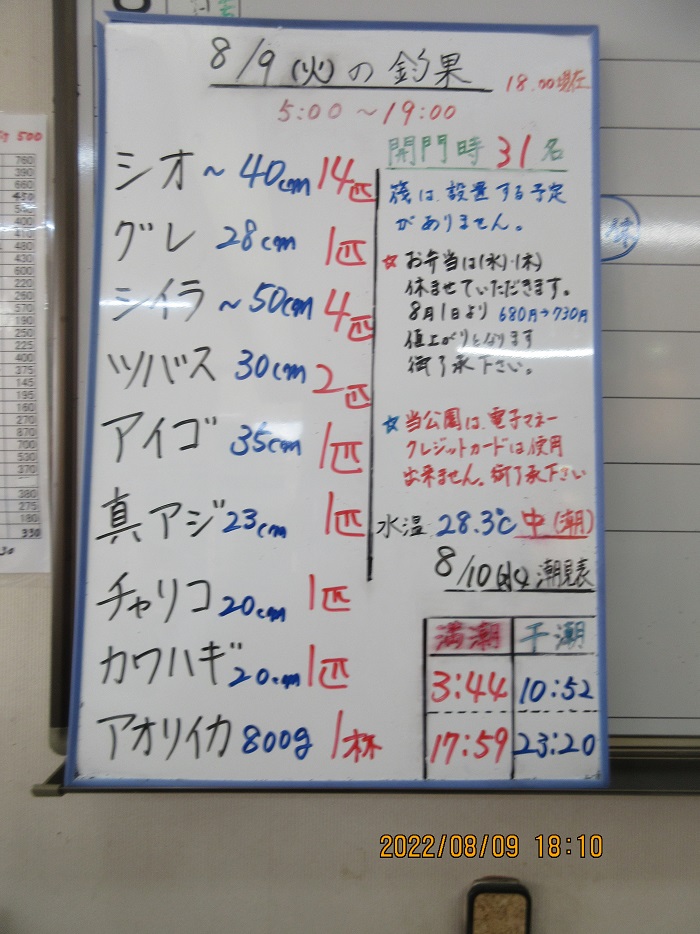 8/9(火)の釣果
18.00現在
5:00～19:00
シオ～40cm 14匹
グレ 28cm 1匹
シイラ～50cm 4匹
ツバス 30cm 2匹
アイゴ 35cm 1匹
真アジ 23cm 1匹
チャリコ 20cm 1匹
カワハギ 20cm 1匹
アオリイカ 800g 1杯
開門時 31名
筏は、設置する予定
がありません。
☆お弁当は(水)・(木)
休ませていただきます。
8月1日より 680円→730円
値上がりとなります
御了承下さい。
☆当公園は、電子マネー
クレジットカードは使用
出来ません。御了承下さい
水温 28.3℃ 中(潮)
8/10(水)潮見表
満潮 干潮
3:44 10:52
17:59 23:20
500
760
390
660
450
400
410
480
430
600
220
260
570
190
250
225
400
375
145
195
160
270
870
700
530
370
380
275
180
330
2022/08/09 18:10